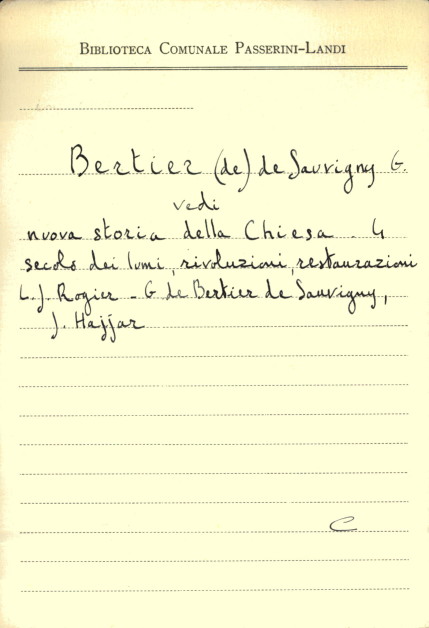 BIBLIOTECA COMUNALE PASSERINI-LANDI
Bertier (de) de Sauvigny G.
vedi
nuova storia della Chiesa - 4
secolo dei lumi, rivoluzioni, restaurazioni
L.J. Rogier - G de Bertier de Sauvigny,
J. Hajjar
C